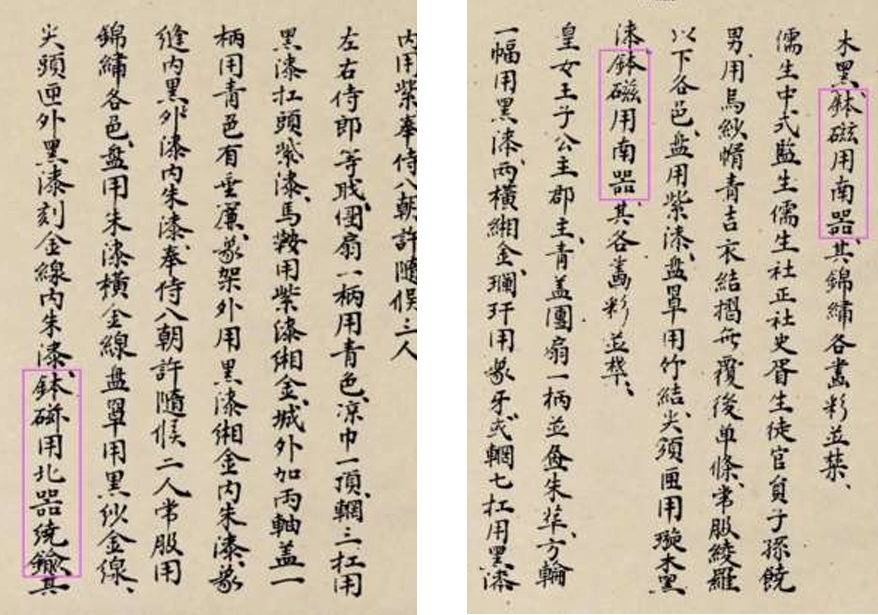 内用紫奉侍入朝許隨候三人
左右侍郎等戝團扇一柄用青色凉巾一頂輞三扛用
黑漆扛頭紫漆馬鞍用紫漆緗金城外加両軸盖一
柄用青色有垂簾象架外用黑漆緗金内朱漆象
縫内黑外漆内朱漆奉侍入朝許隨候二人常服用
錦繡各色盘用朱漆横金線盘罩用黑纱金線
尖頭匣外黑漆刻金線内朱漆鉢磁用北器繞鍮其
木黑鉢磁用南器其錦繡各畵彩並禁
儒生中式監生儒生社正社史胥生徒官員子孫饒
男用烏紗帽青吉衣結摺無覆後单條常服綾羅
以下各色盘用紫漆盘罩用竹結尖頭匣用璇木黑
漆鉢磁用南器其各畵彩並禁
皇女王子公主郡主青盖團扇一柄並朱方輪
一幅用黑漆両横緗金玕用象牙弍輞七扛用黑漆